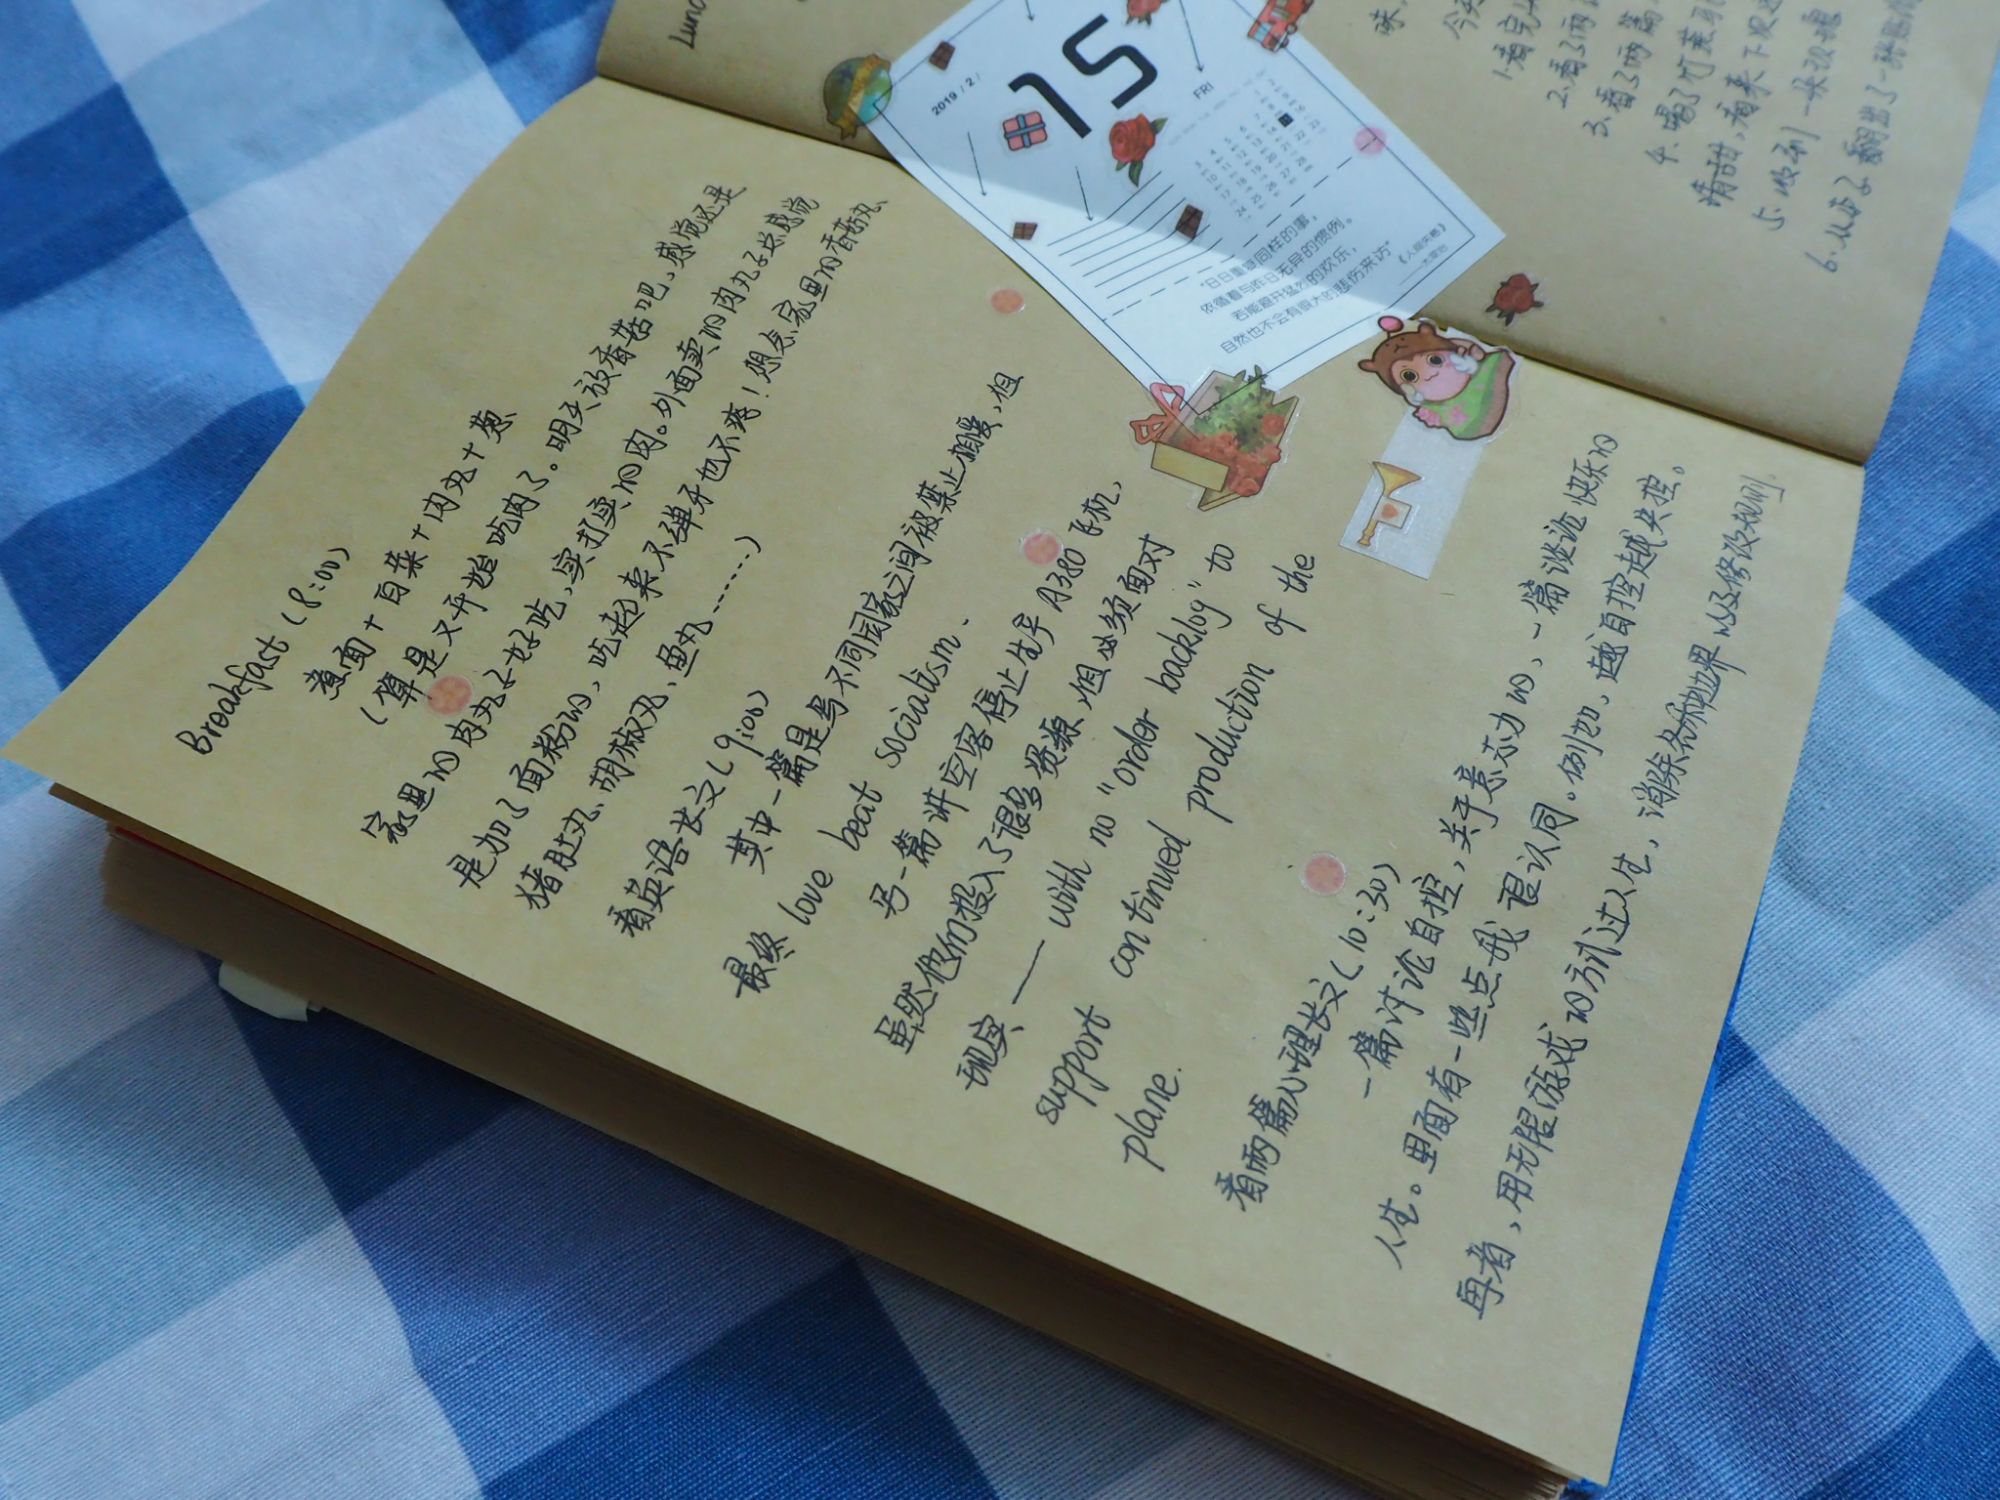 Breakfast (8:00)
煮面+白菜+肉丸+葱
(算是又开始吃肉了。明天放香菇吧,感觉还是
家里的肉丸子好好吃,实打实的肉。外面卖的肉丸子总感觉
是加了面粉的,吃起来不弹牙也不爽!想念家里的香菇丸、
猪肚丸、胡椒丸、鱼丸……)
看英语长文(9:00)
其中一篇是写不同国家之间被禁止相爱,但
最终 love beat socialism.
另一篇讲空客停止生产A380飞机,
虽然他们投入了很多资源,但必须面对
现实——with no "order backlog" to
support continued production of the
plane.
看两篇心理长文(10:30)
一篇讨论自控,关于意志力的、一篇谈论快乐的
人生。里面有一些点我很认同。例如,越自控越失控。
再者,用无限游戏的方式过人生,消除各种边界以及修改规则。
2019 / 2 /
15
FRI
"日日重复同样的事,
依循着与昨日无异的惯例。
若能避开猛烈的欢乐,
自然也不会有很大的悲伤来访"
《人间失格》
——太宰治
Lunc
味,
今天
1.看完
2.看了两
3.看了两篇
4.喝了竹蔗
清甜,看来下次还
5.收到一块
6.从 翻出了一张